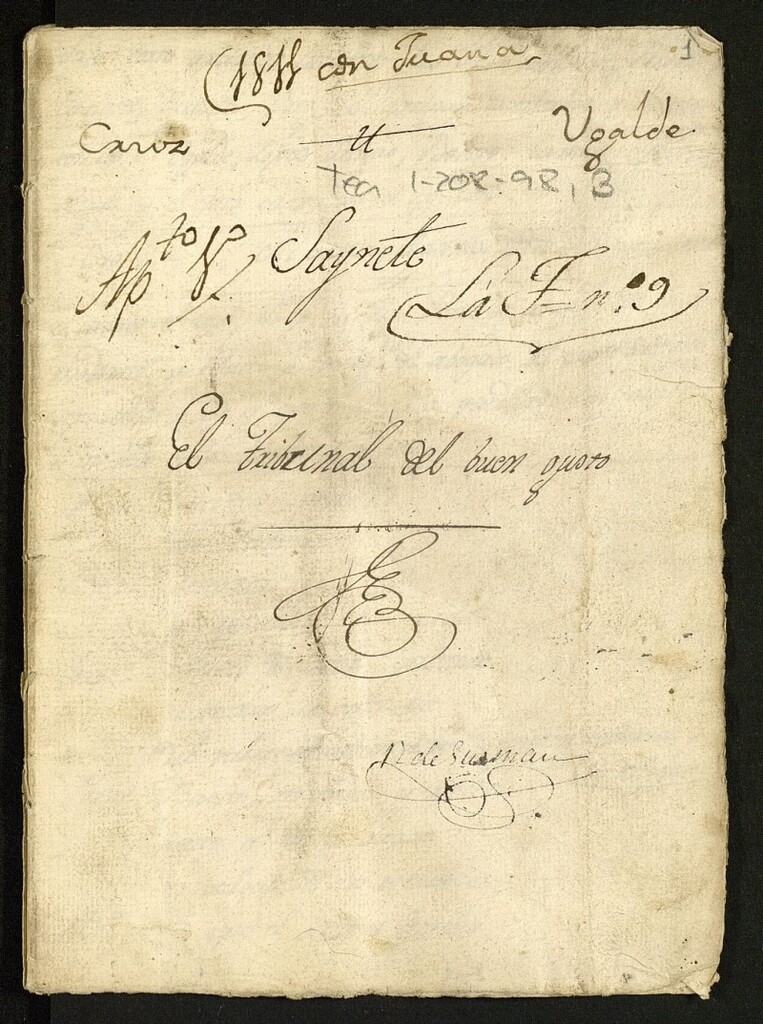 1811 con Juana
1
Cruz
Ugalde
Tea 1-208-98, B
Ap.to
Saynete
La F= n.º 9
El Tribunal del buen gusto
de Guzman